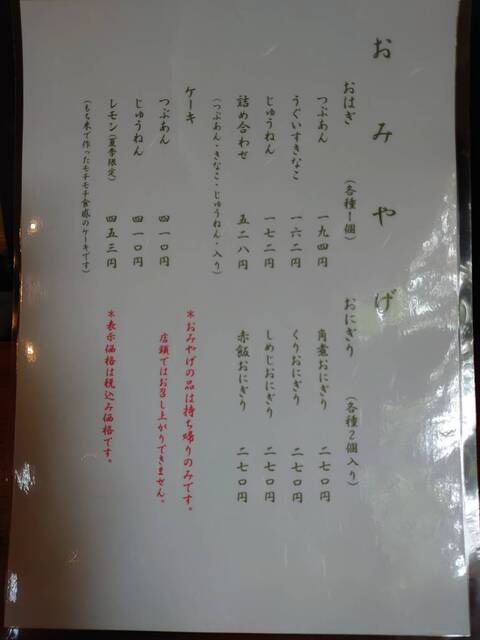 おみやげ
おはぎ (各種1個)
つぶあん 一九四円
うぐいすきなこ 一六二円
じゅうねん 一七二円
詰め合わせ 五二八円
(つぶあん・きなこ・じゅうねん・入り)
ケーキ
つぶあん 四一〇円
じゅうねん 四一〇円
レモン(夏季限定) 四五三円
(もち米で作ったモチモチ食感のケーキです)
おにぎり (各種2個入り)
角煮おにぎり 二七〇円
くりおにぎり 二七〇円
しめじおにぎり 二七〇円
赤飯おにぎり 二七〇円
*おみやげの品は持ち帰りのみです。
店頭ではお召し上がりできません。
*表示価格は税込み価格です。